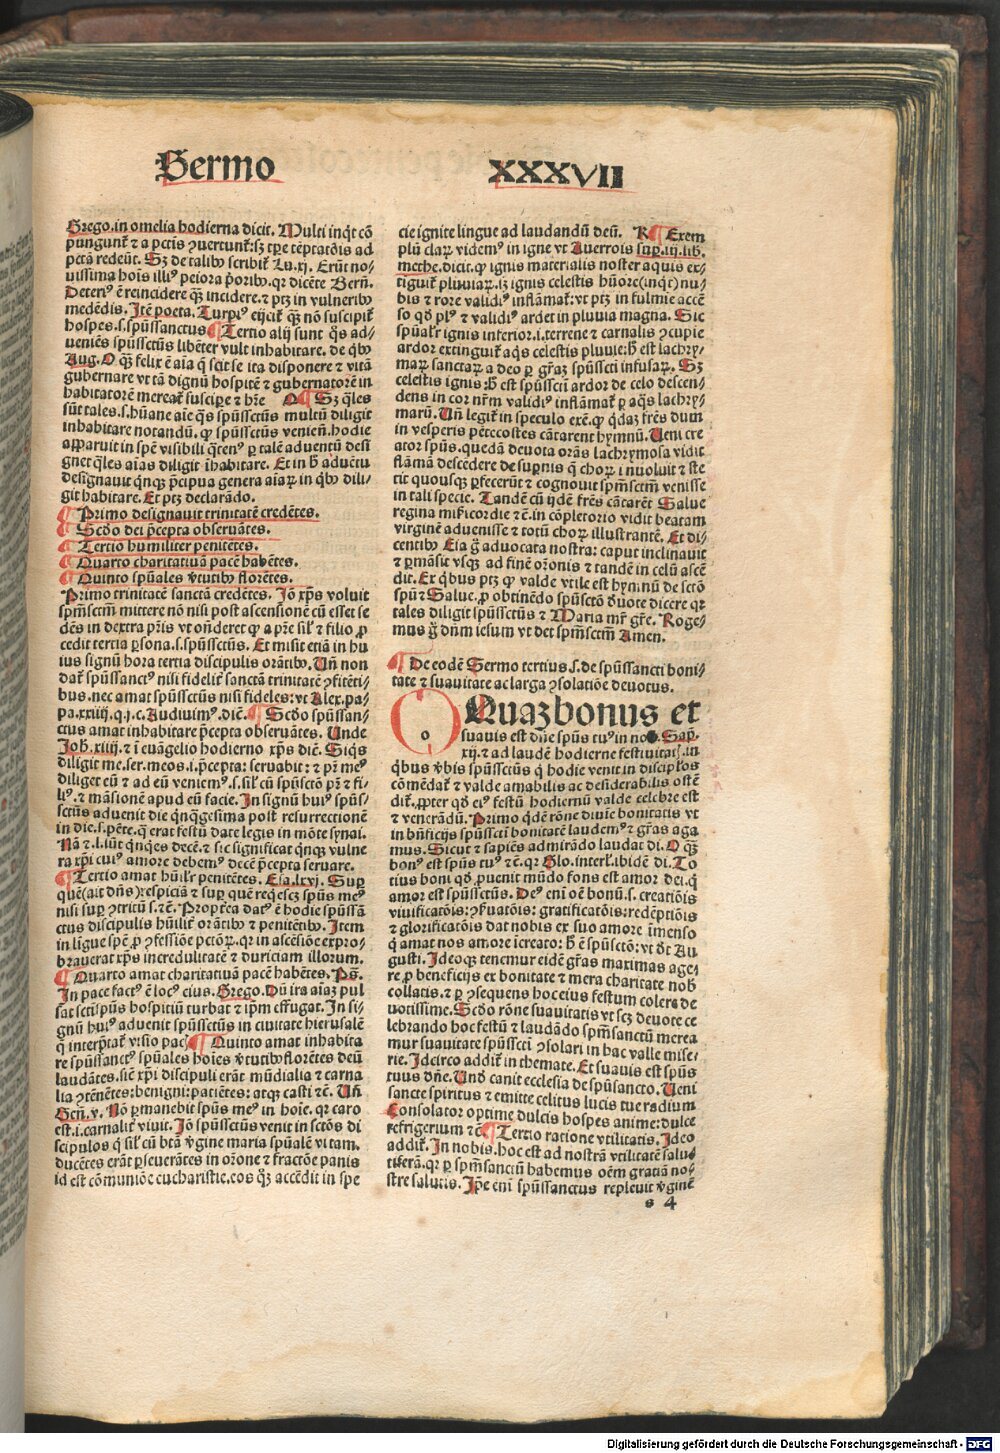 Sermo XXXVII
Grego. in omelia hodierna dicit. Multi inq̄t cō
pungunt̄ ⁊ a pctis ꝯuertunt̄: sꝫ tꝑe tēptatōis ad
pctā redeūt. Sꝫ de talibꝰ scribit̄ Lu. xj. Erūt no⸗
uissima hoīs illiꝰ peiora ṗoribꝰ. qꝛ dicēte Bern̄.
Deteriꝰ ē reincidere qꝫ̄ incidere. ⁊ ptꝫ in vulneribꝰ
medēdis. Itē poeta. Turpiꝰ eijcit̄ qꝫ̄ nō suscipit̄
hospes. s. spūssanctus ¶ Tertio alij sunt q̇s ad⸗
ueniēs spūssctūs libēter vult inhabitare. de q̇bꝰ
Aug. O qꝫ̄ felix ē aīa q̄ scit se ita disponere ⁊ vitā
gubernare vt tā dignū hospitē ⁊ gubernatorē in
habitatorē mereat̄ suscipe ⁊ hr̄e ¶ Sꝫ q̄les
sūt tales. s. hūane aīe q̄s spūssctūs multū diligit
inhabitare notandū. ꝙ spūssctūs venien̄. hodie
apparuit in spē visibili q̄tenꝰ ꝑ talē aduentū desi
gnet q̄les aīas diligit īhabitare. Et in h̄ aduētu
designauit q̇nqꝫ p̄cipua genera aīaꝝ in q̇bꝰ dili⸗
git habitare. Et ptꝫ declarādo.
¶ Primo designauit trinitatē credētes.
¶ Scdo dei p̄cepta obseruātes.
¶ Tertio humiliter penitētes.
¶ Quarto charitatiuā pacē habētes.
¶ Quinto spūales v̄tutibꝰ florētes.
Primo trinitatē sanctā credētes. Iō xp̄s voluit
spm̄sctm̄ mittere nō nisi post ascensionē cū esset se
dēs in dextra pr̄is vt on̄deret ꝙ a pr̄e sil̄ ⁊ filio ꝓ
cedit tertia ꝑsona. s. spūssctūs. Et misit etiā in hu
ius signū hora tertia discipulis orātibꝰ. Un̄ non
dat̄ spūssanctꝰ nisi fidelit̄ sanctā trinitatē ꝯfitēti⸗
bus. nec amat spūssctūs nisi fideles: vt Alex. pa⸗
pa. xxiiij. q. j. c. Audiuimꝰ. dic̄. ¶ Scdo spūssan⸗
ctus amat inhabitare p̄cepta obseruātes. Unde
Joh̄. xiiij. ⁊ ī euāgelio hodierno xp̄s dic̄. Siq̇s
diligit me. ser. meos. i. p̄cepta: seruabit: ⁊ pr̄ meꝰ
diliget eū ⁊ ad eū veniemꝰ. s. sil̄ cū spūsctō pr̄ ⁊ fi⸗
liꝰ. ⁊ māsionē apud eū facie. In signū huiꝰ spūs⸗
sctūs aduenit die q̇nq̄gesima post resurrectionē
in die. s. pēte. q̄ erat festū date legis in mōte synai.
Nā ⁊. l. sūt q̇nq̇es decē. ⁊ sic significat q̇nqꝫ vulne
ra xp̄i cuiꝰ amore debemꝰ decē p̄cepta seruare.
¶ Tertio amat hūil̄r penitētes. Esa. lxvj. Suꝑ
quē (ait dn̄s) respiciā ⁊ suꝑ quē req̇escꝫ spūs meꝰ
nisi suꝑ ꝯtritū s. ⁊c̄. Propt̄ea datꝰ ē hodie spūssā
ctus discipulis hūilit̄ orātibꝰ ⁊ penitētibꝰ. Item
in ligue spē ꝓ ꝯfessiōe pctōꝝ. qꝛ in ascēsiōe expro⸗
brauerat xp̄s incredulitatē ⁊ duriciam illorum.
¶ Quarto amat charitatiuā pacē habētes. Ps̄.
In pace factꝰ ē locꝰ eius. Grego. Dū ira aīaꝫ pul
sat sctispūs hospitiū turbat ⁊ ip̄m effugat. In si⸗
gnū huiꝰ aduenit spūssctūs in ciuitate hierusalē
q̄ interp̄tat̄ visio pac̄ ¶ Quinto amat inhabita
re spūssanctꝰ spūales hoīes v̄tutibꝰ florētes deū
laudātes. sic̄ xp̄i discipuli erāt mūdialia ⁊ carna
lia ꝯtēnētes: benigni: patiētes: atqꝫ casti ⁊c̄. Un̄
Gen̄. v. Nō ꝑmanebit spūs meꝰ in hoīe. qꝛ caro
est. i. carnalit̄ viuit. Iō spūssctūs venit in sctōs di
scipulos q̇ sil̄ cū btā v̄gine maria spūalē vitam.
ducētes erāt ꝑseuerātes in or̄one ⁊ fractōe panis
id est cōmuniōe eucharistie. eos q̊ꝫ accēdit in spe
cie ignite lingue ad laudandū deū. R ¶ Exem
plū claꝝ videmꝰ in igne vt Auerrois suꝑ. iij. lib.
methe. dicit. ꝙ ignis materialis noster aquis ex⸗
tiguit̄ pluuiaꝝ. sꝫ ignis celestis hūore (inq̄t) nu⸗
bis ⁊ rore validiꝰ inflāmat̄: vt ptꝫ in fulmīe accē
so qd̄ plꝰ ⁊ validiꝰ ardet in pluuia magna. Sic
spūal̄r ignis inferior. i. terrene ⁊ carnalis ꝯcupie
ardor extinguit̄ aq̄s celestis pluuie: h̄ est lachry⸗
maꝝ sanctaꝝ a deo ꝑ gr̄aꝫ spūsscti infusaꝝ. Sꝫ
celestis ignis: h̄ est spūsscti ardor de celo descen⸗
dens in cor nr̄m validiꝰ inflāmat̄ ꝑ aq̄s lachry⸗
marū. Un̄ legit̄ in speculo exē. ꝙ q̇daꝫ fres dum
in vesperis pētecostes cātarent hymnū. Ueni cre
ator spūs. quedā deuota orās lachrymosa vidit
flāmā descēdere de supnis q̄ choꝝ inuoluit ⁊ ste
tit quousqꝫ ꝑfecerūt ⁊ cognouit spm̄sctm̄ venisse
in tali specie. Tandē cū ijdē fres cātarēt Salue
regina mīscicordie ⁊c̄. in cōpletorio vidit beatam
virginē aduenisse ⁊ totū choꝝ illustrantē. Et di⸗
centibꝰ Eia g̊ aduocata nostra: caput inclinauit
⁊ ꝑmāsit vsqꝫ ad finē or̄onis ⁊ tandē in celū ascē
dit. Ex q̇bus ptꝫ ꝙ valde vtile est hymnū de sctō
spū ⁊ Salue. ꝓ obtinēdo spūsctō d̄uote dicere qꝛ
tales diligit spūssctūs ⁊ Maria mr̄ gr̄e. Roge⸗
mus g̊ dn̄m iesum vt det spm̄sctm̄ Amen.
¶ De eodē Sermo tertius. s. de spūssancti boni⸗
tate ⁊ suauitate ac larga ꝯsolatiōe deuotus.
O Quaꝫ bonus et
suauis est dn̄e spūs tuꝰ in no. Sap.
xij. ⁊ ad laudē hodierne festiuitat̄. in
q̇bus v̄bis spūssctūs q̇ hodie venit in discip̄los
cōmēdat̄ ⁊ valde amabilis ac desiderabilis ostē
dit̄. ꝓpter qd̄ eiꝰ festū hodiernū valde celebre est
⁊ venerādū. Primo q̇dē rōne diuīe bonitatis vt
in bn̄ficijs spūsscti bonitatē laudemꝰ ⁊ gr̄as aga
mus. Sicut ⁊ sapiēs admirādo laudat di. O qꝫ̄
bonꝰ est spūs tuꝰ ⁊c̄. qꝛ Glo. interl̄. ibidē di. To
tius boni qd̄ ꝓuenit mūdo fons est amor dei. q̇
amor est spūssctūs. Deꝰ enī oē bonū. s. creatiōis
viuificatōis: ꝯẜuatōis: gratificatōis: redēptiōis
⁊ glorificatōis dat nobis ex suo amore īmenso
q̇ amat nos amore īcreato: h̄ ē spūsctō: vt dt̄ Au
gusti. Ideoqꝫ tenemur eidē gr̄as maximas age⸗
re ꝓ beneficijs ex bonitate ⁊ mera charitate nob̄
collatis. ⁊ ꝑ ꝯsequens hoc eius festum colere de
uotissime. Scdo rōne suauitatis vt scꝫ deuote ce
lebrando hoc festū ⁊ laudādo spm̄sanctū merea
mur suauitate spūsscti ꝯsolari in hac valle mise⸗
rie. Idcirco addit̄ in themate. Et suauis est spūs
tuus dn̄e. Un̄ canit ecclesia de spūsancto. Ueni
sancte spiritus ⁊ emitte celitus lucis tue radium
Consolator optime dulcis hospes anime: dulce
refrigerium ⁊c̄ ¶ Tertio ratione vtilitatis. Ideo
addit̄. In nobis. hoc est ad nostrā vtilitatē salu⸗
tiferā. qꝛ ꝑ spm̄sanctū habemus oēm gratiā no⸗
stre salutis. Ip̄e enī spūssanctus repleuit v̄ginē
s 4
Digitalisierung gefördert durch die Deutsche Forschungsgemeinschaft - DFG